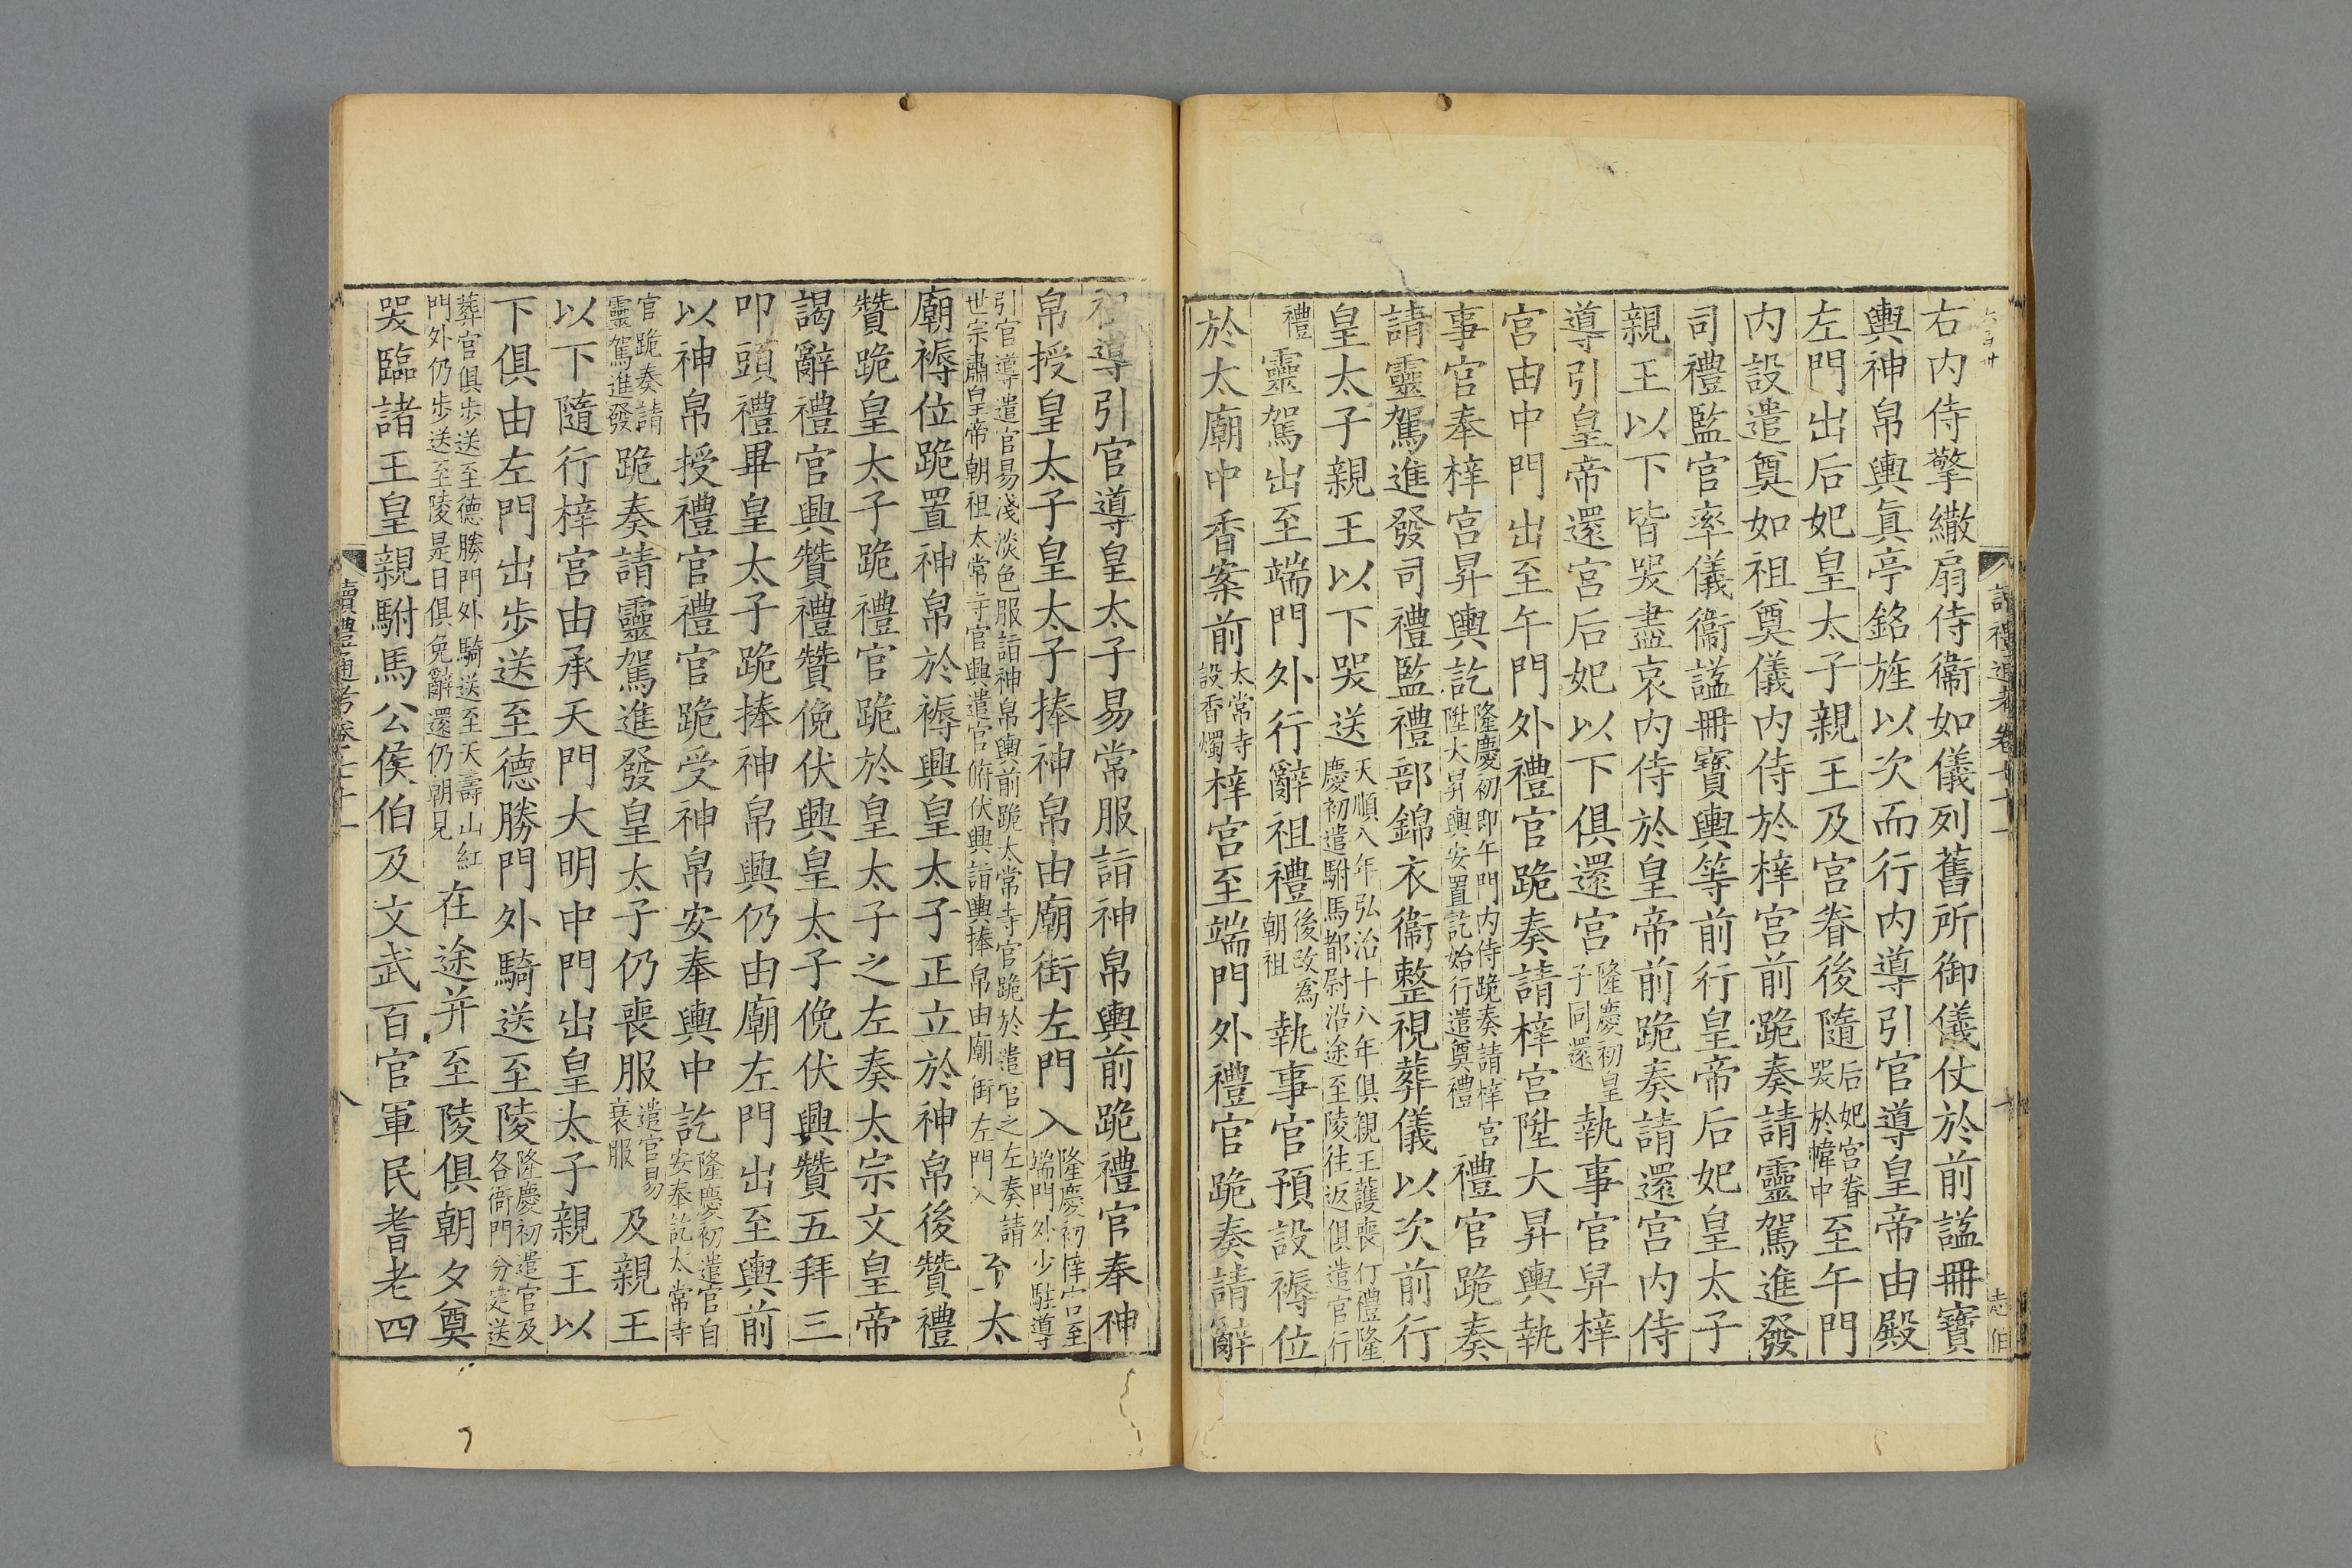 右内侍擎繖扇侍衞如儀列舊所御儀仗於前謚冊寶
輿神帛輿眞亭銘旌以次而行内導引官導皇帝由殿
左門出后妃皇太子親王及宮眷後隨后妃宮眷哭於幃中至午門
内設遣奠如祖奠儀内侍於梓宮前跪奏請靈駕進發
司禮監官率儀衞謚冊寶輿等前行皇帝后妃皇太子
親王以下皆哭盡哀内侍於皇帝前跪奏請還宮内侍
導引皇帝還宮后妃以下俱還宮隆慶初皇子同還執事官舁梓
宮由中門出至午門外禮官跪奏請梓宮陞大昇輿執
事官奉梓宮昇輿訖隆慶初即午門内侍跪奏請梓宮陞大昇輿安置訖始行遣奠禮禮官跪奏
請靈駕進發司禮監禮部錦衣衞整視葬儀以次前行
皇太子親王以下哭送天順八年弘治十八年俱親王護喪行禮隆慶初遣駙馬都尉沿途至陵往返俱遣官行
禮靈駕出至端門外行辭祖禮後改爲朝祖執事官預設褥位
於太廟中香案前太常寺設香燭梓宮至端門外禮官跪奏請辭
讀禮通考卷七十一
祖導引官導皇太子易常服詣神帛輿前跪禮官奉神
帛授皇太子皇太子捧神帛由廟街左門入隆慶初梓宮至端門外少駐導
引官導遣官易淺淡色服詣神帛輿前跪太常寺官跪於遣官之左奏請世宗肅皇帝朝祖太常寺官興遣官俯伏興詣輿捧帛由廟街左門入至太
廟褥位跪置神帛於褥興皇太子正立於神帛後贊禮
贊跪皇太子跪禮官跪於皇太子之左奏太宗文皇帝
謁辭禮官興贊禮贊俛伏興皇太子俛伏興贊五拜三
叩頭禮畢皇太子跪捧神帛興仍由廟左門出至輿前
以神帛授禮官禮官跪受神帛安奉輿中訖隆慶初遣官自安奉訖太常寺
官跪奏請靈駕進發跪奏請靈駕進發皇太子仍喪服遣官易衰服及親王
以下隨行梓宮由承天門大明中門出皇太子親王以
下俱由左門出步送至德勝門外騎送至陵隆慶初遣官及各衙門分定送
葬官俱步送至德勝門外騎送至天壽山紅門外仍步送至陵是日俱免辭還仍朝見在途并至陵俱朝夕奠
哭臨諸王皇親駙馬公侯伯及文武百官軍民耆老四
讀禮通考卷七十一